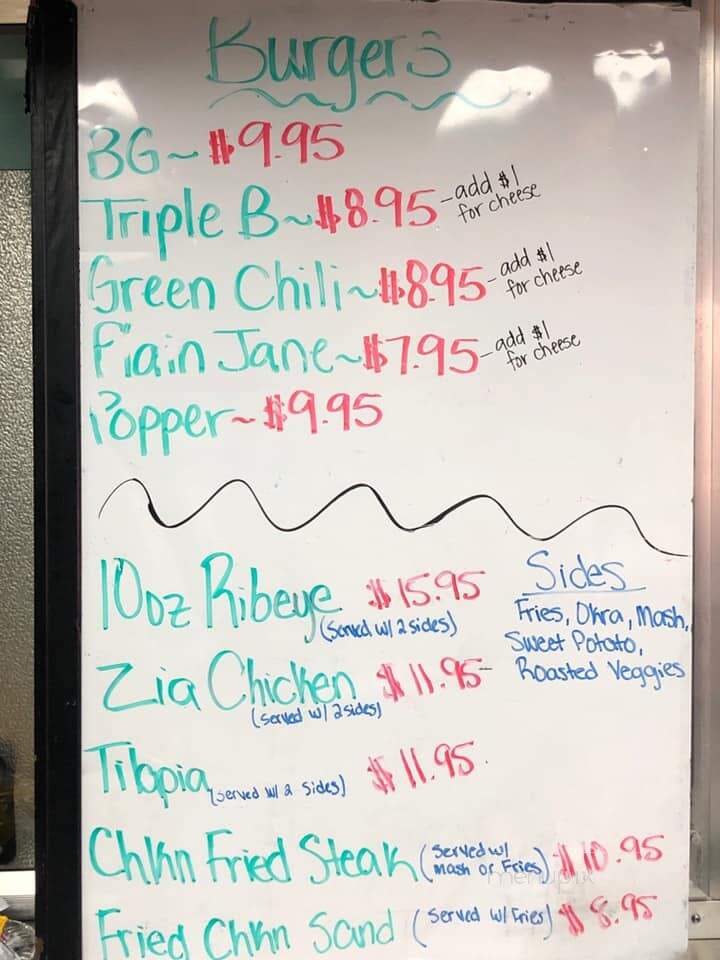 Burgers
BG~ $9.95
Triple B~ $8.95 - add $1 for cheese
Green Chili~ $8.95 - add $1 for cheese
Plain Jane~ $7.95 - add $1 for cheese
Popper~ $9.95
10oz Ribeye $15.95
(served w/ 2 sides)
Zia Chicken $11.95-
(served w/ 2 sides)
Tilapia (served w/ 2 sides) $11.95
Chkn Fried Steak (served w/ mash or Fries) $10.95
Fried Chkn Sand (served w/ Fries) $8.95
Sides
Fries, Okra, Mash,
Sweet Potato,
Roasted Veggies
menupix